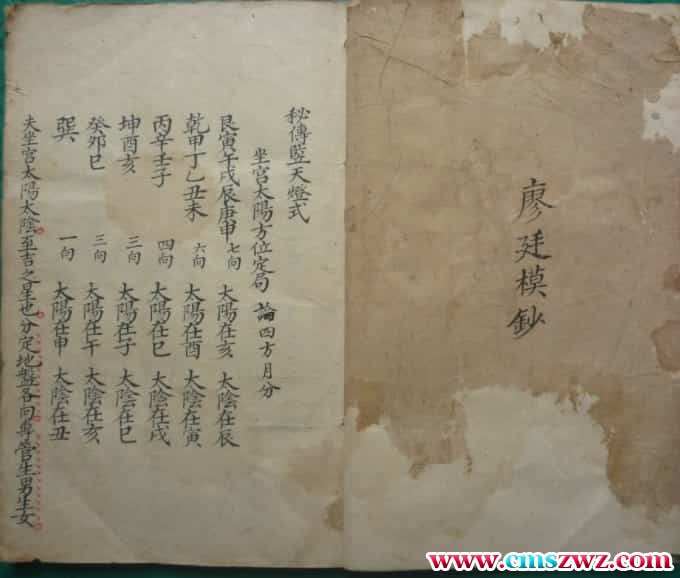 廖廷模鈔
秘傳豎天燈式
坐宮太陽方位定局 論四方月分
艮寅午戌辰庚申 七向 太陽在亥 太陰在辰
乾甲丁乙丑未 六向 太陽在酉 太陰在寅
丙辛壬子 四向 太陽在巳 太陰在戌
坤酉亥 三向 太陽在子 太陰在巳
癸卯巳 三向 太陽在午 太陰在亥
巽 一向 太陽在申 太陰在丑
夫坐宮太陽太陰至吉之星也分定地盤各向專管生男生女
www.cmszwz.com